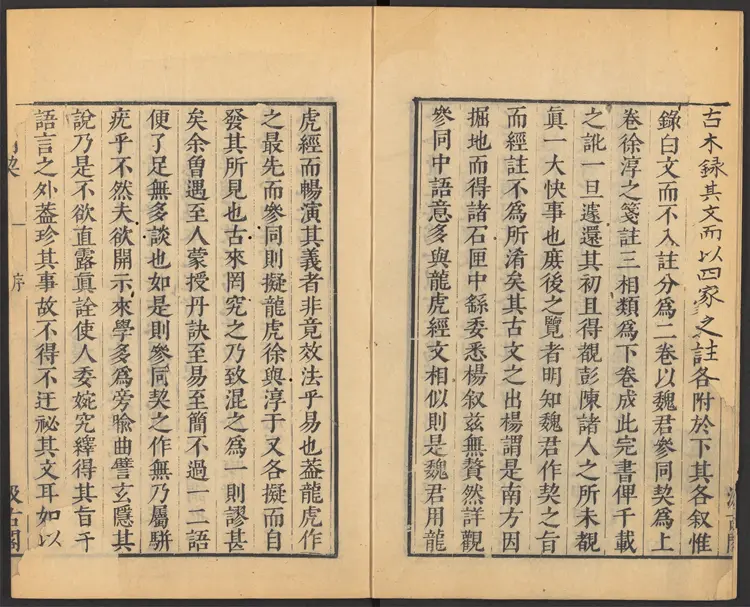 古本録其文而以四家之註各附於下其各叙惟
錄白文而不入註分為二卷以魏君參同契為上
卷徐淳之箋註三相類為下卷成此完書俾千載
之訛一旦遽還其初且得觀彭陳諸人之所未覩
眞一大快事也庻後之覽者明知魏君作契之旨
而經註不為所淆矣其古文之出楊謂是南方因
掘地而得諸石匣中繇委悉楊叙兹無贅然詳觀
參同中語意多與龍虎經文相似則是魏君用龍
汲古閣
虎經而暢演其義者非竟效法乎易也葢龍虎作
之最先而參同則擬龍虎徐與淳于又各擬而自
發其所見也古來罔究之乃致混之為一則謬甚
矣余曾遇至人蒙授丹訣至易至簡不過一二語
便了足無多談也如是則參同契之作無乃屬駢
疣乎不然夫欲開示來學多為旁喻曲譬玄隱其
說乃是不欲直露眞詮使人委婉究繹得其旨于
語言之外葢珍其事故不得不迂祕其文耳如以
契 一 序
汲古閣